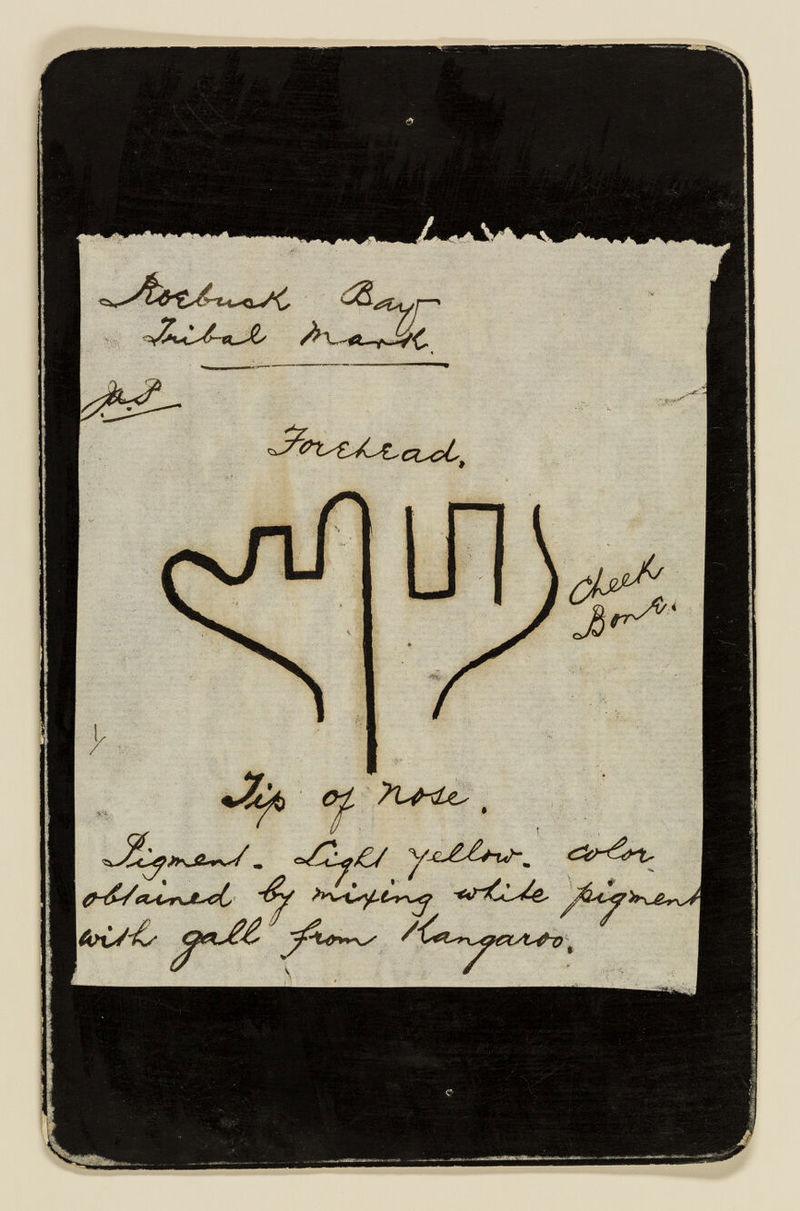 Roebuck Bay
Tribal Mark.
J.a.P
Forehead.
Cheek
Bone.
Tip of Nose.
Pigment. Light yellow. color
obtained by mixing white pigment
with gall from Kangaroo.